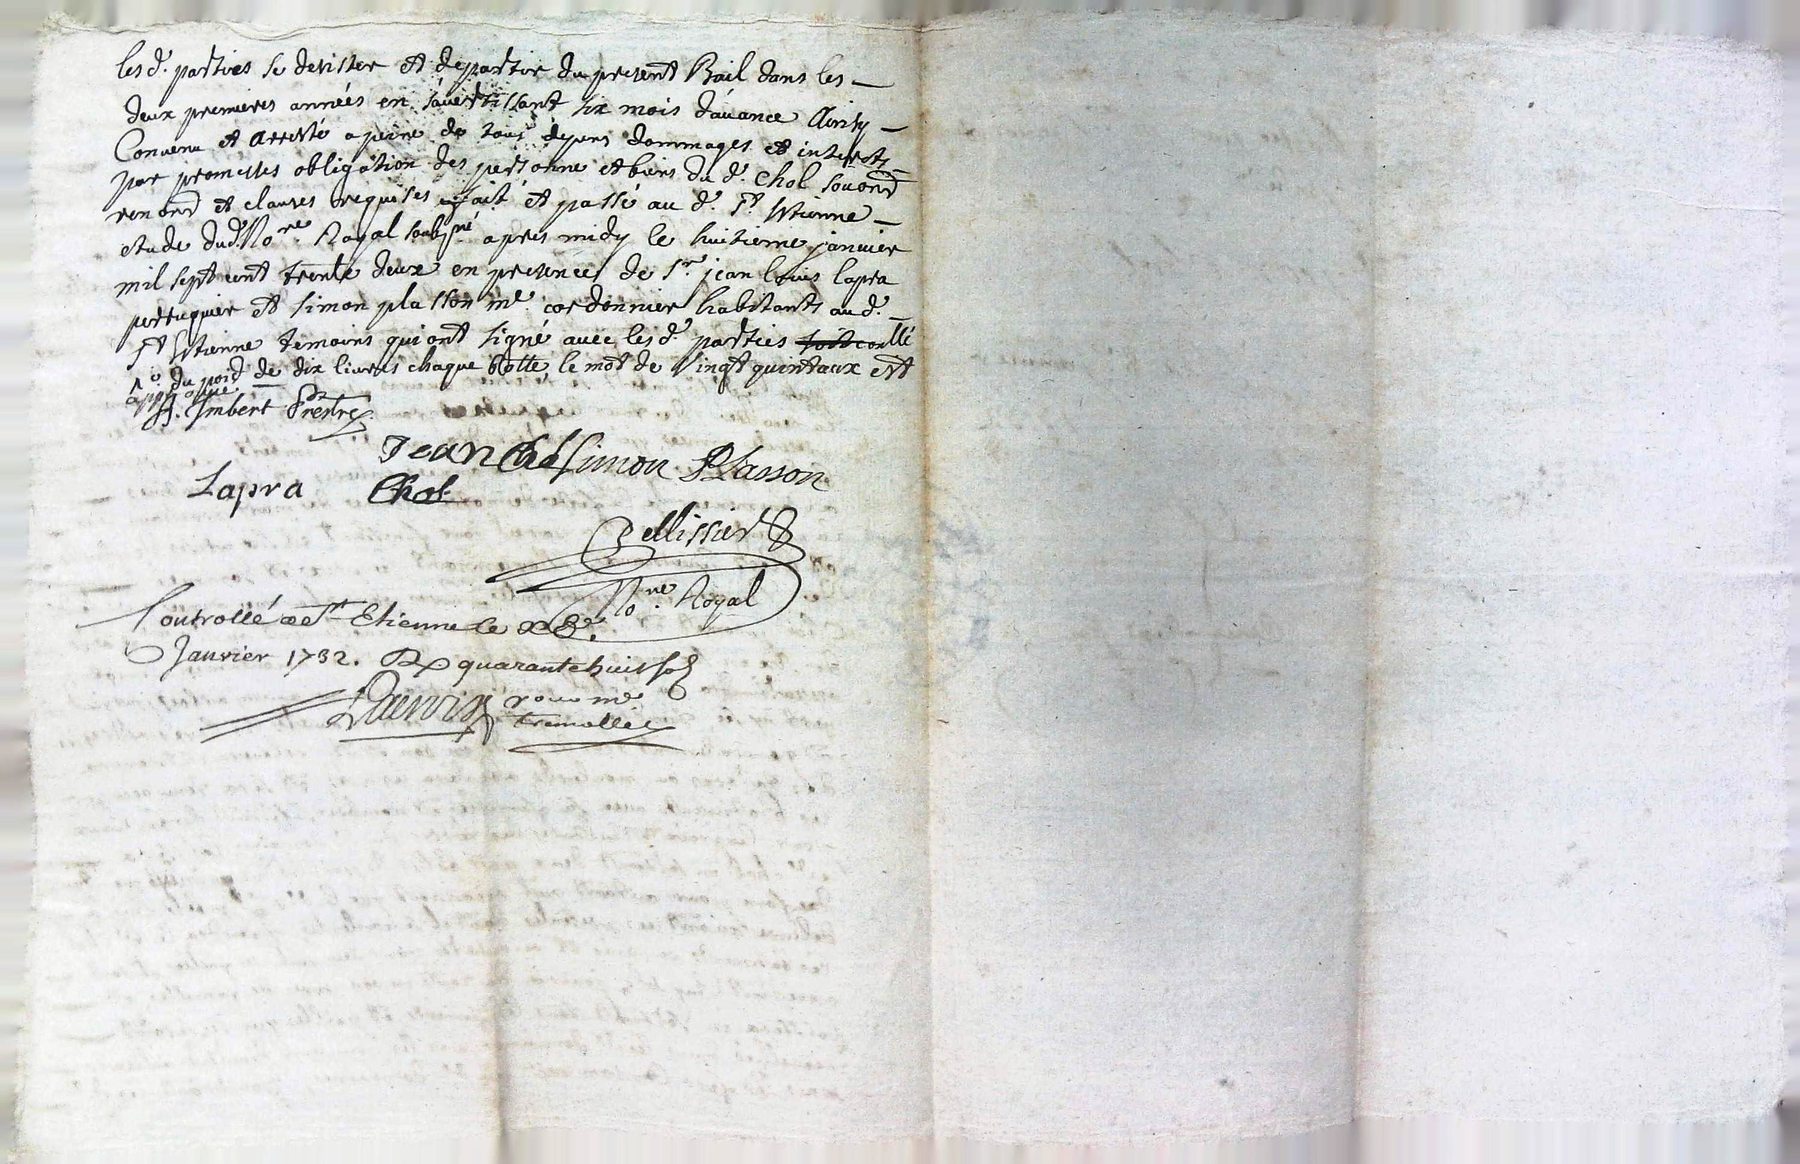 lesd. parties se desister et departir du present Bail dans les
deux premieres années en s'avertissant six mois d'avance Ainsy
Convenu et arresté a peine de tous depens dommages et interests
par promesses obligation des personne et biens du d. Chol
renond et clauses requises fait et passé au d. St. Etienne
etude dud. No.re Royal soubsné apres midy le huitieme janvier
mil sept cent trente deux en presence de Sr. jean louis lapra
perruquier et simon plasson me. cordonnier habitants aud.
St. Etienne temoins qui ont signé avec lesd. parties
du poid de dix livres chaque Botte, le mot de Vingt quintaux est
approuvé
Imbert Prestre
Jean Chol Simon PLasson
Lapra Chol
Pellissier
No.re Royal
Controllé a St Etienne le
Janvier 1732. Rx quarante huit sols